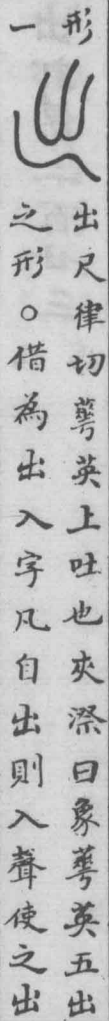 形
一
出尺律切蕚英上吐也夾漈曰象蕚英五出
之形○借為出入字凡自出則入聲使之出